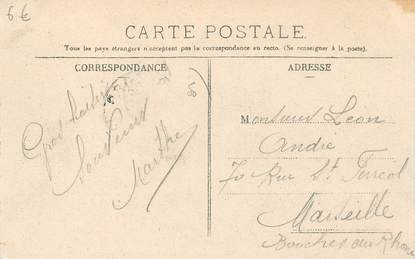 6€
CARTE POSTALE.
Tous les pays étrangers n'acceptent pas la correspondance au recto. (Se renseigner à la poste).
CORRESPONDANCE
ADRESSE
Souvenir
Monsieur Leon
André
70 Rue St Ferréol
Marseille
Bouches du Rhône